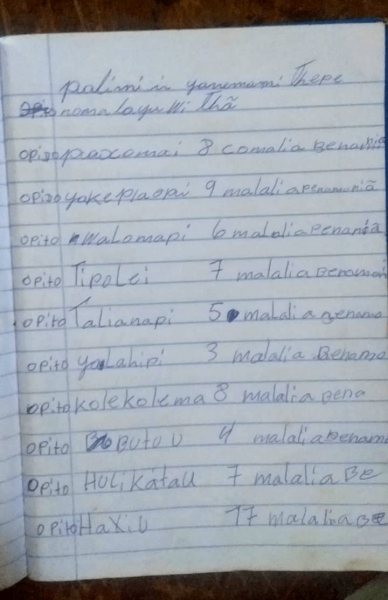 palimi ii yanemami Thepe
noma layu Wi Thã
opito paxomai 8 comalia Benamia
opito yokeplaopi 9 malalia penamuniã
opito Walomapi 6 malalia penamiã
opito Tipolei 7 malalia Benomai
opito Talianapi 5 malalia Benama
opito yalahipi 3 malalia Benama
opito kolekolema 8 malalia Bena
opito BUTU U 4 malalia benami
opito HULiKátaU 7 malalia Be
o Pito HaXiU 17 malalia Be